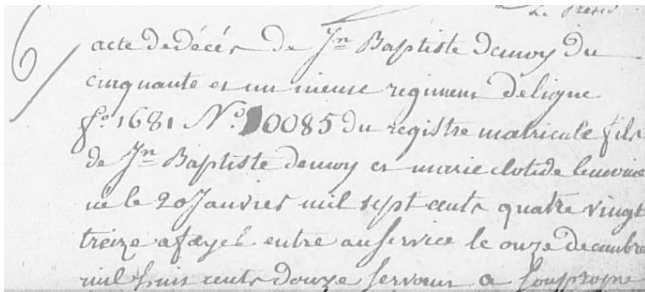 Le
6/ acte de décés de Jn Baptiste demoy du
cinquante et un ieme regiment de ligne
fo. 1681 No. 10085 du registre matricule fils
de Jn Baptiste demoy et marie clotide
né le 20 Janvier mil sept cents quatre vingt
treize a fayel entre au service le onze decembre
mil huit cents douze serveur a